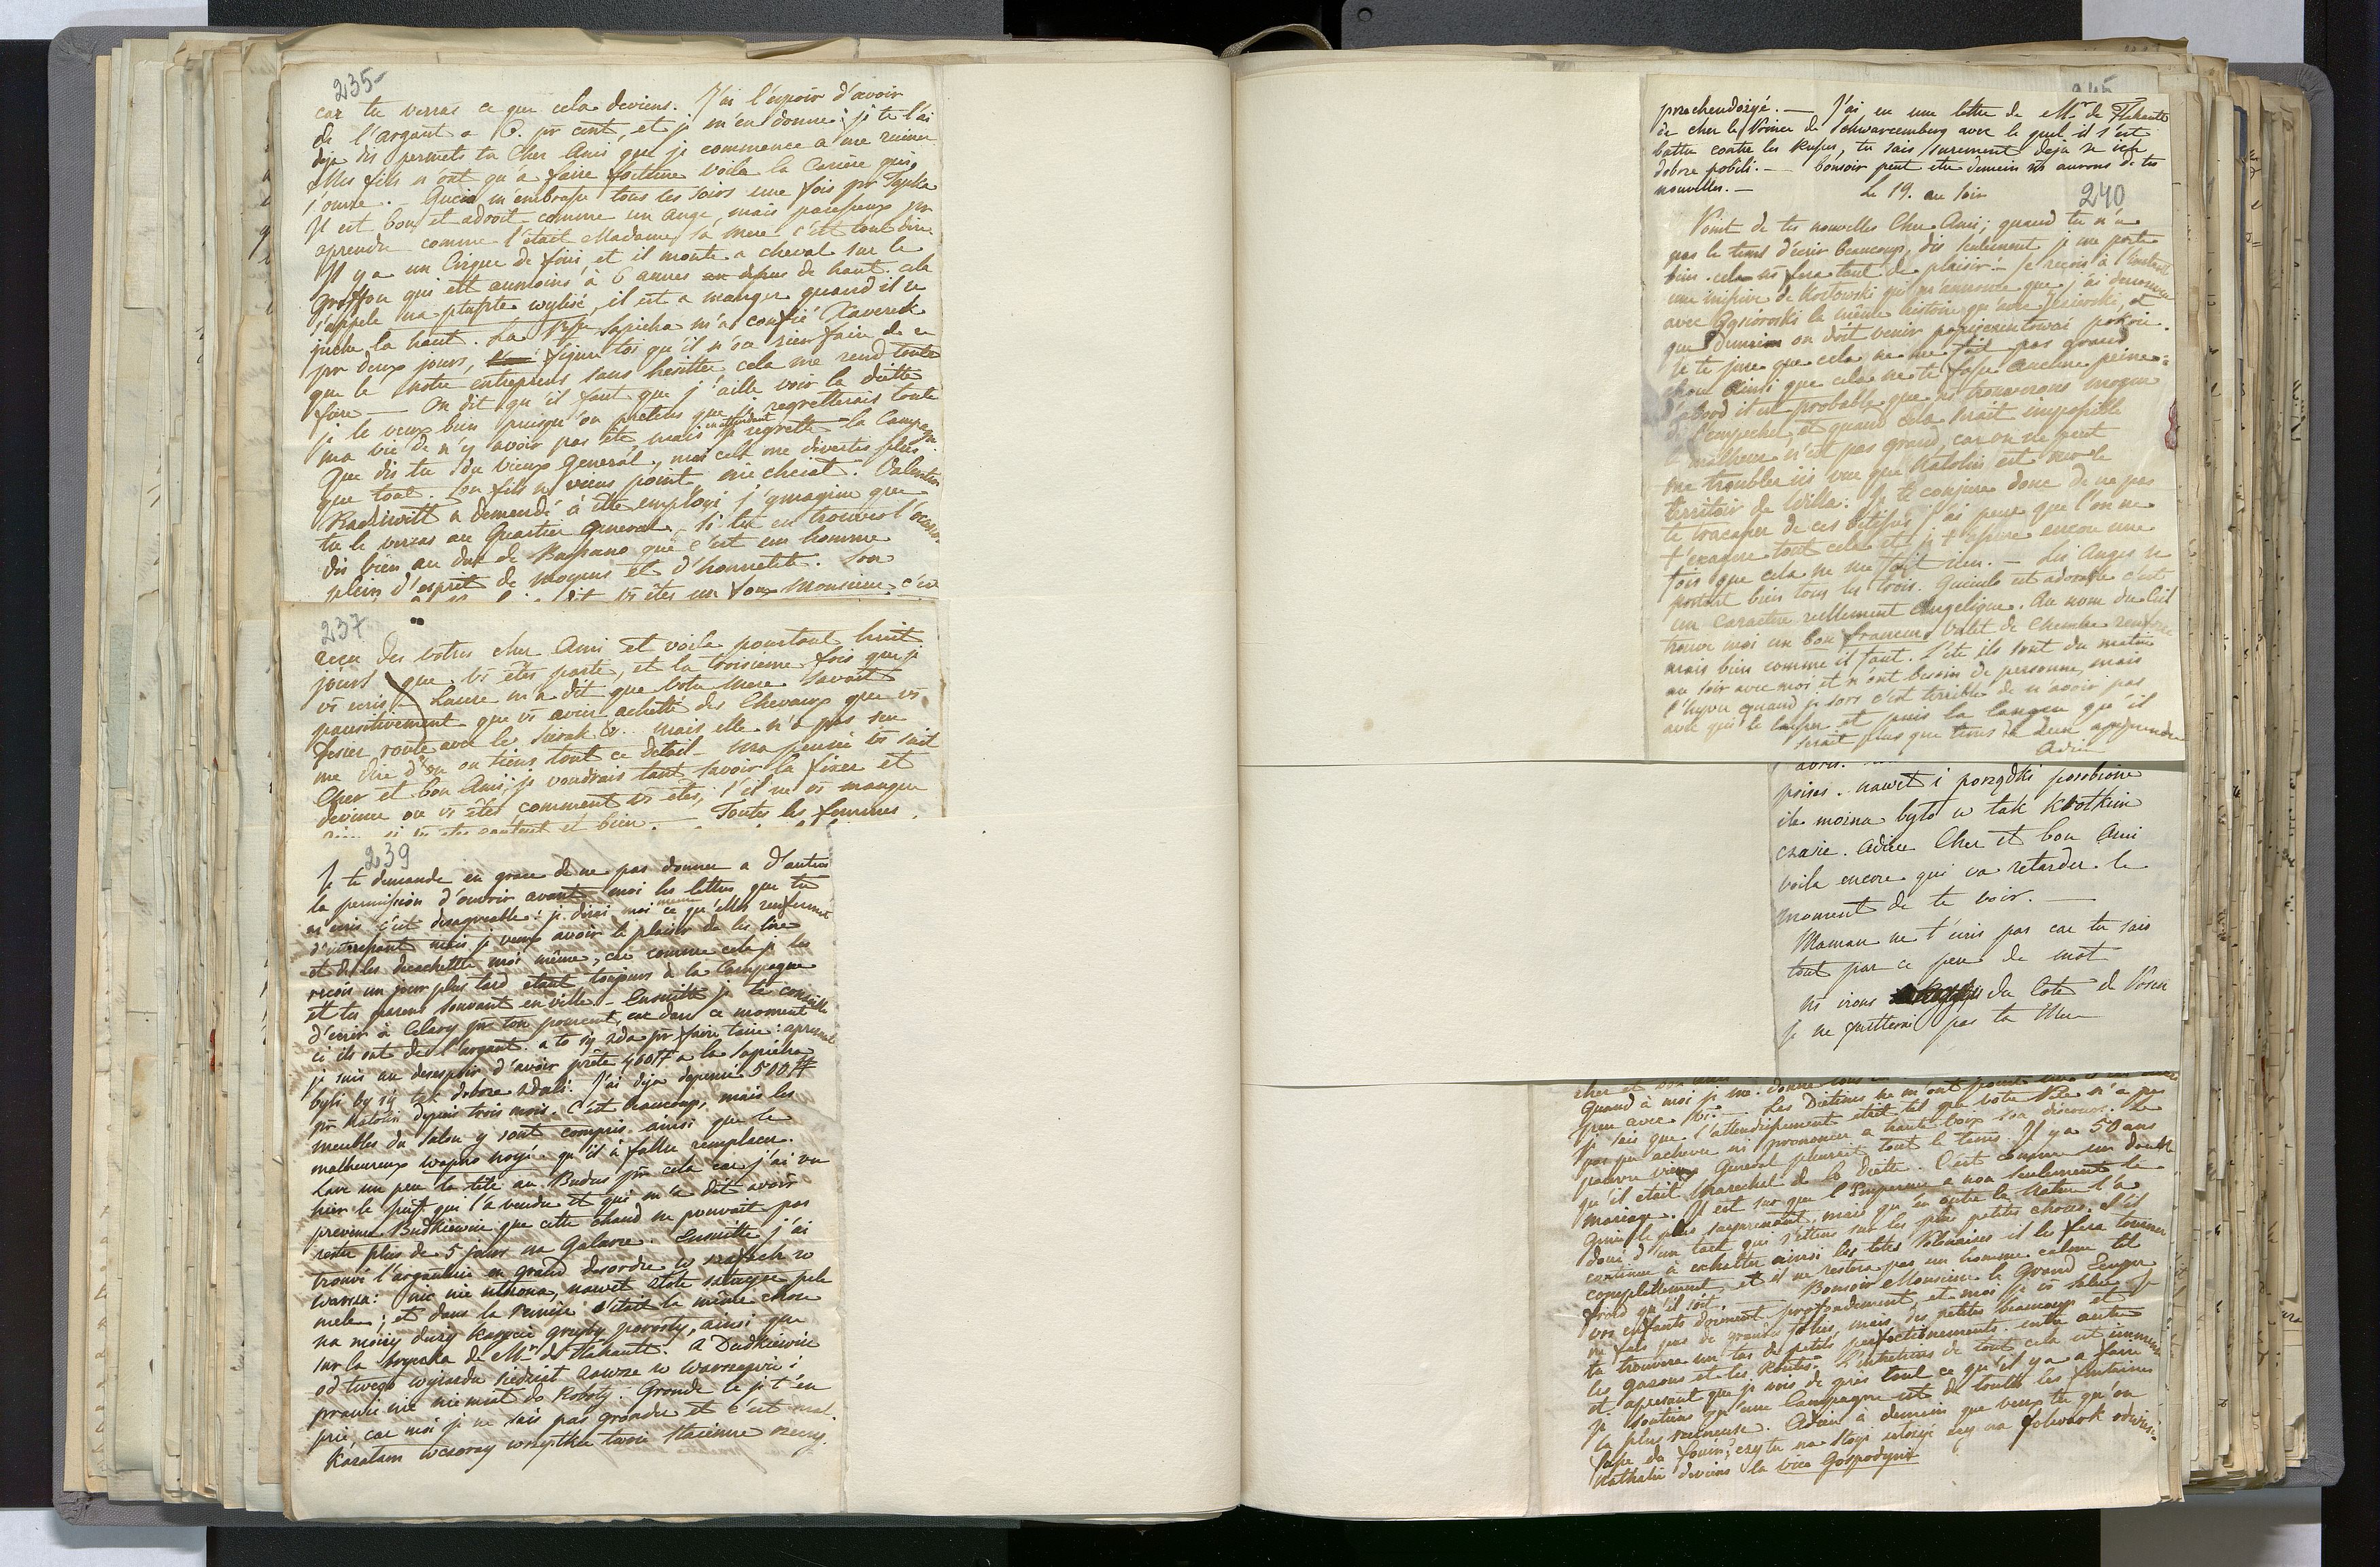 235
car tu verras ce que cela deviens. J'ai l'espoir d'avoir
de l'argant a 6. pr cent, et je m'en donne; je te l'ai
deja dis permets tu Cher Ami que je commence a me ruiner
Mes fils n'ont qu'a faire fortune voila la Cariere qui
s'ouvre. Gucio m'embrasse tous les soirs une fois pr Tapka
Il est bon et adroit comme un ange, mais paresseux pr
aprendre comme l'etait Madame sa mere c'est tout dire
Il y a un Cirque de fini et il monte a cheval sur le
Griffon qui est aumoins à 6 aunes de haut. cela
s'appele na wylisé, il est a manger quand il se
juche la haut. La Psse Sapieha m'a confié Xaverek
pr deux jours, figure toi qu'il n'osa rien faire de ce
que le notre entreprens sans hesitter cela me rend toute
fiere — On dit qu'il faut que j'aille voir la diette
je le veux bien puisqu'on pretens que je regretterais toute
ma vie de n'y avoir pas été mais en attendant je regrette la Campagne
Que dis tu du vieux General, moi cela me divertis plus
que tout. Son fils ne veux point nie chciat. Valentin
Radziwill a demandé à être employé j'ymagine que
tu le verras au Quartier General, si tu en trouves l'ocasion
dis bien au duc de Bassano que c'est un homme
plein d'esprit de moyens et d'honnetete. Son
dit vs êtes un fou Monsieur c'est
237
recu des votres cher Ami et voila pourtant huit
jours que vs êtes parti, et la troisieme fois que je
vs ecris. Laure m'a dit que votre Mere savait
pausitivement que vs aviez achetté des Chevaux que vs
fesiez route avec le Surak &. mais elle n'a pas seu
me dire d'ou on tiens tout ce detail. Ma pensée vs suit
Cher et bon Ami, je voudrais tant savoir la fixer et
deviner ou vs êtes, comment vs êtes, s'il ne vs manque
rien si vs etes content et bien. — Toutes les femmes
239
Je te demande en grace de ne pas donner a d'autres
la permission d'ouvrir avant moi les lettres que tu
m'ecris c'est desagreable: je dirai moi meme ce qu'elles renferment
d'interessant mais je veux avoir le plaisir de les lire
et de les decachetter moi même, car comme cela je les
recois un jour plus tard etant toujours à la Campagne
et tes parens souvant en ville. — Ensuitte je te conseille
d'ecrir à Celery pr ton pourcent, car dans ce moment
ci ils ont de l'argant. a to sy zda pr faire taire: apresent
je suis au desespoir d'avoir prêté 4000# a la Sapieha
byli by sy tak dobrze zdali. J'ai deja depensé 500#
pr Natolin depuis trois mois. C'est beaucoup, mais les
meubles du Salon y sont compris. ainsi que le
malheureux wapno noyé. qu'il à fallu remplacer.
Lave un peu la tête au Budus pr cela car j'ai vu
hier le juif qui l'a vendu et qui m'a dit avoir
prevenu Budkiewicz que cette chaud ne pouvait pas
rester plus de 5 jours na Galarze. Ensuitte j'ai
trouvé l'argantrie en grand desordre w szafach w
warsza: nic nie , nawet zlote pele
mele; et dans la remise c'etait la même chose
na moiey duzy Karecie grzyby porosly, ainsi que
sur la bryczka de Mr de Flahault. A Dudkiewicz
od twego wyiazdu siedział zawsze w Warszawie i
prawie nic nie miat do Roboty. Gronde le je t'en
prie, car moi je ne sais pas gronder et c'est mal.
Kazatam wczoray wszystkie twoie
245
przechendozyć. — J'ai eu une lettre de Mr de Flahault
de cher le Prince de Schwarcemberg avec le quel il s'est
battu contre les Russes, tu sais surement deja ze ich
dobrze pobili. — bonsoir peut etre demain ns aurons de tes
nouvelles. —
Le 19. au soir
240
Point de tes nouvelles Cher Ami; quand tu n'a
pas le tems d'ecrir beaucoup, dis seulement je me porte
bien. cela ns fera tant de plaisir! — Je reçois à l'instant
une missive de Kostowski qui m'annonce que j'ai
avec la même histoire qu'avec , et
que demain on doit venir pokoie.
Je te jure que cela ne me fait pas grand
chose ainsi que cela ne te fasse aucune peine:
d'abord il est probable que ns trouverons moyen
de l'empecher, et quand cela serait impossible
le malheur n'est pas grand, car on ne peut
me troubler ici vue que Natolin est sur le
territoir de Willa: Je te conjure donc de ne pas
te tracasser de ces betises j'ai peur que l'on ne
t'exagere tout cela et je t'assure encore une
fois que cela ne me fait rien. — Les Anges se
portent bien tous les trois. Gucinlo est adorable c'est
un caractere réellement Angelique. Au nom du Ciel
trouve moi un bon francais Valet de Chambre
mais bien comme il faut. L'eté ils sont du matin
au soir avec moi et n'ont besoin de personne, mais
l'hyver quand je sors c'est terrible de n'avoir pas
avec qui le laisser et puis la langue qu'il
serait plus que tems de leur apprendre
Adieu
poiser. nawet i porządki porobione
ile można było w tak Krótkim
czasie. Adieu Cher et bon Ami
voila encore qui va retarder le
moment de te voir. —
Maman ne t'ecris pas car tu sais
tout par ce peu de mot
Ns irons du Coté de Posen
je ne quitterai pas ta Mere
Quand à moi je me donne
peu avec vs. — Les Dietines ne m'ont point
je sais que l'attendrissement etait tel que votre Pere n'a pu
pas pu achever ni prononcer a haute voix son discours. Le
pauvre vieux General pleurait tout le tems. Il y a 50 ans
qu'il etait Marechal de la Diette. C'est comme un double
mariage. Il est sur que l'Empereur a non seulement le
Genie le plus surprenant, mais qu'en outre la Nature l'a
doué d'un tact qui s'etens sur les plus petites choses. S'il
continue à exhalter ainsi les têtes Polonaises il les fera tourner
complettement, et il ne restera pas un homme calme et
froid qu'il soit. — Bonsoir Monsieur le Grand Ecuyer
vos enfants dorment profondement, et moi je vs salue. Je
ne fais pas de grandes folies, mais des petites beaucoup et
tu trouvera un tas de petits perfectionements. entre autre
les gazons et les Routes. L'entretiens de tout cela est immense
et apresent que je vois de pres tout ce qu'il y a a faire
je soutiens qu'une Campagne est de touttes les fantaisies
la plus ruineuse. Adieu à demain que veux tu qu'on
fasse du fouin; czy tu na Stogi ulozyc czy na folwark
Nathalie deviens la vice Gospodynie